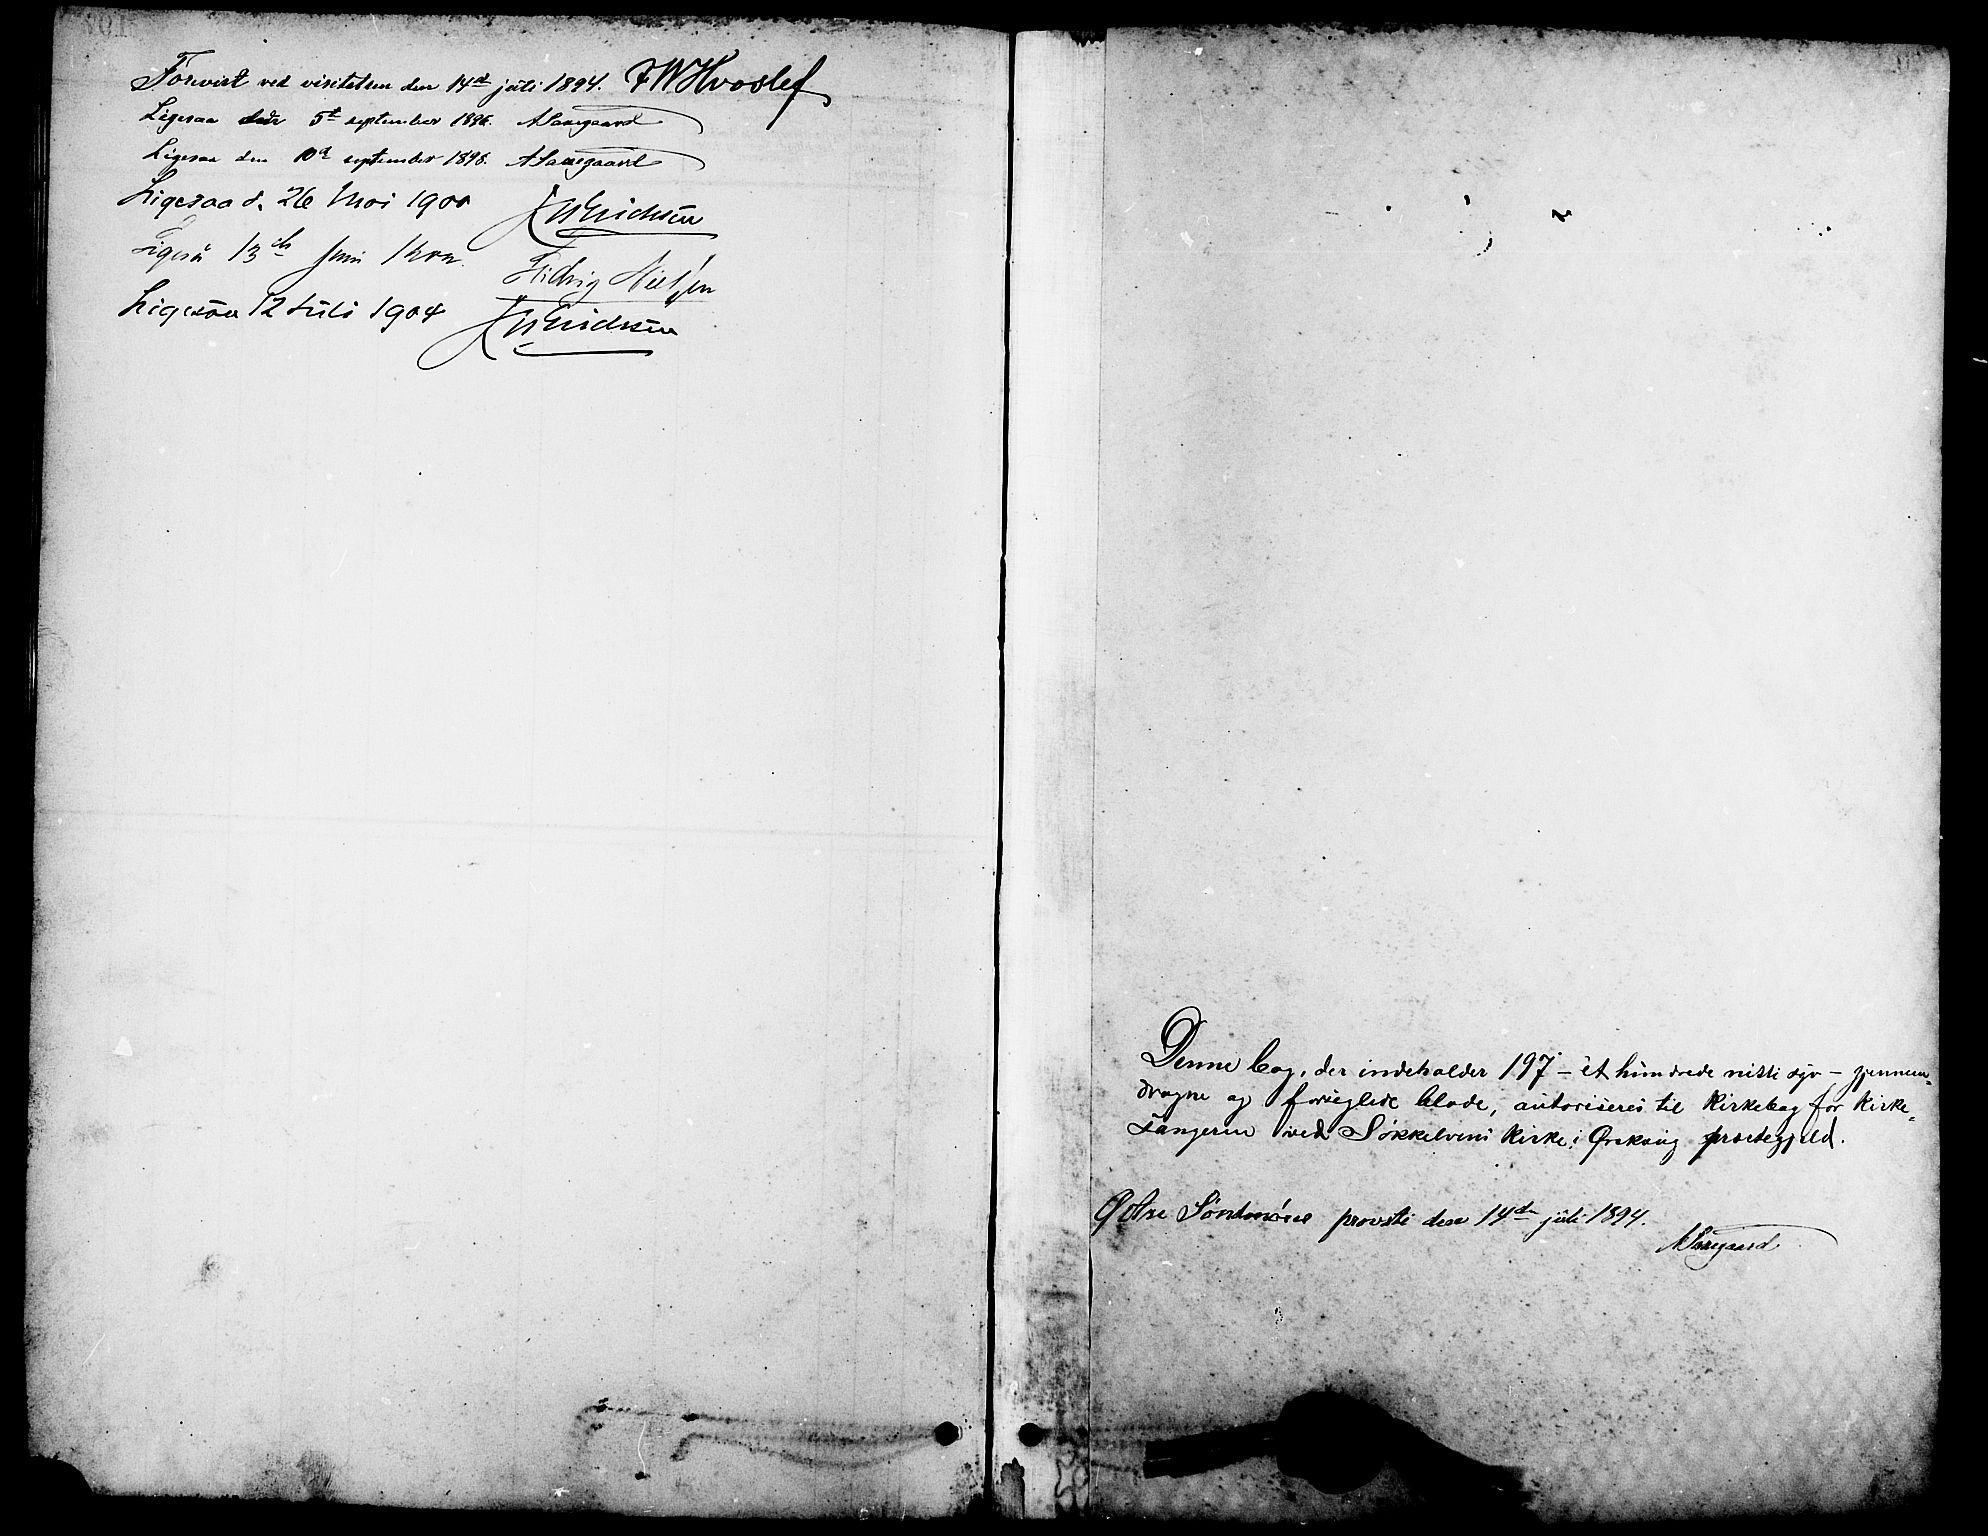 Forevist ved visitatsen den 14de juli 1894. FWHvoslef
Ligesaa den 5te september 1896. ASaxegaard
Ligesaa den 10de september 1898. ASaxegaard
Ligesaa d. 26 Mai 1900 Erichsen
Ligeså 13de Juni Nielsen
Ligesaa 12 Juli 1904 Erichsen
Denne bog, der indeholder 197 – et hundrede nitti syv – gjennem-
dragne og forseglede blade, autoriseres til kirkebog for kirke-
sangeren ved Søkkelvens kirke i Ørskoug præstegjeld.
Østre Søndmøres provsti den 14de juli 1894.
ASaxegaard